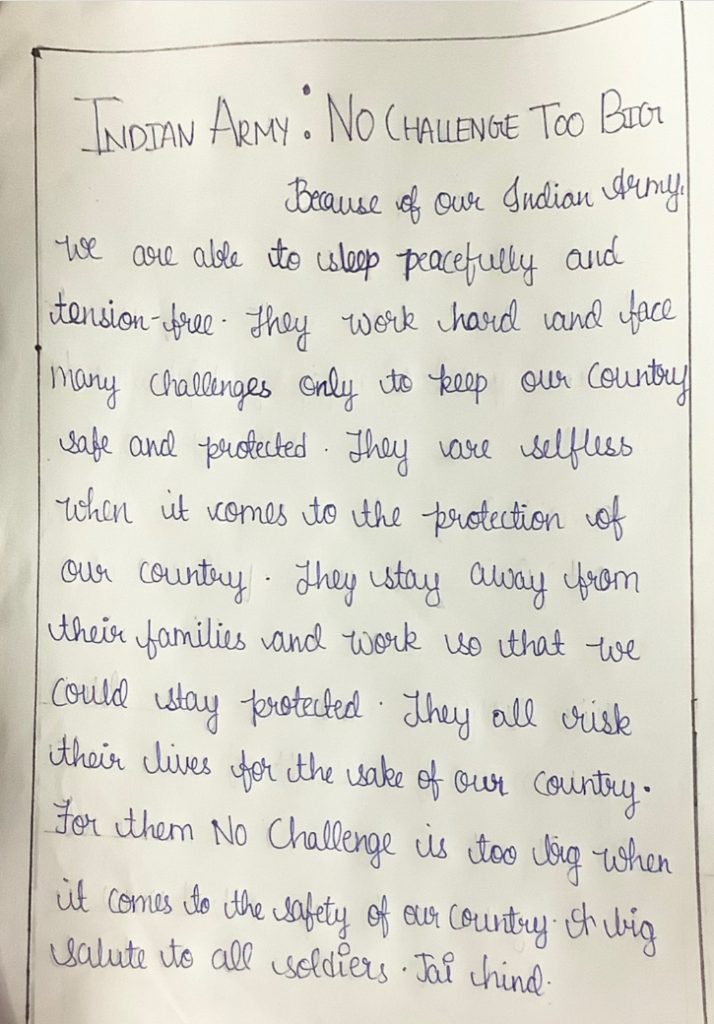 INDIAN ARMY: NO CHALLENGE TOO BIG
Because of our Indian Army,
we are able to sleep peacefully and
tension-free. They work hard and face
many challenges only to keep our country
safe and protected. They are selfless
when it comes to the protection of
our country. They stay away from
their families and work so that we
could stay protected. They all risk
their lives for the sake of our country.
For them No Challenge is too big when
it comes to the safety of our country. A big
salute to all soldiers. Jai hind.